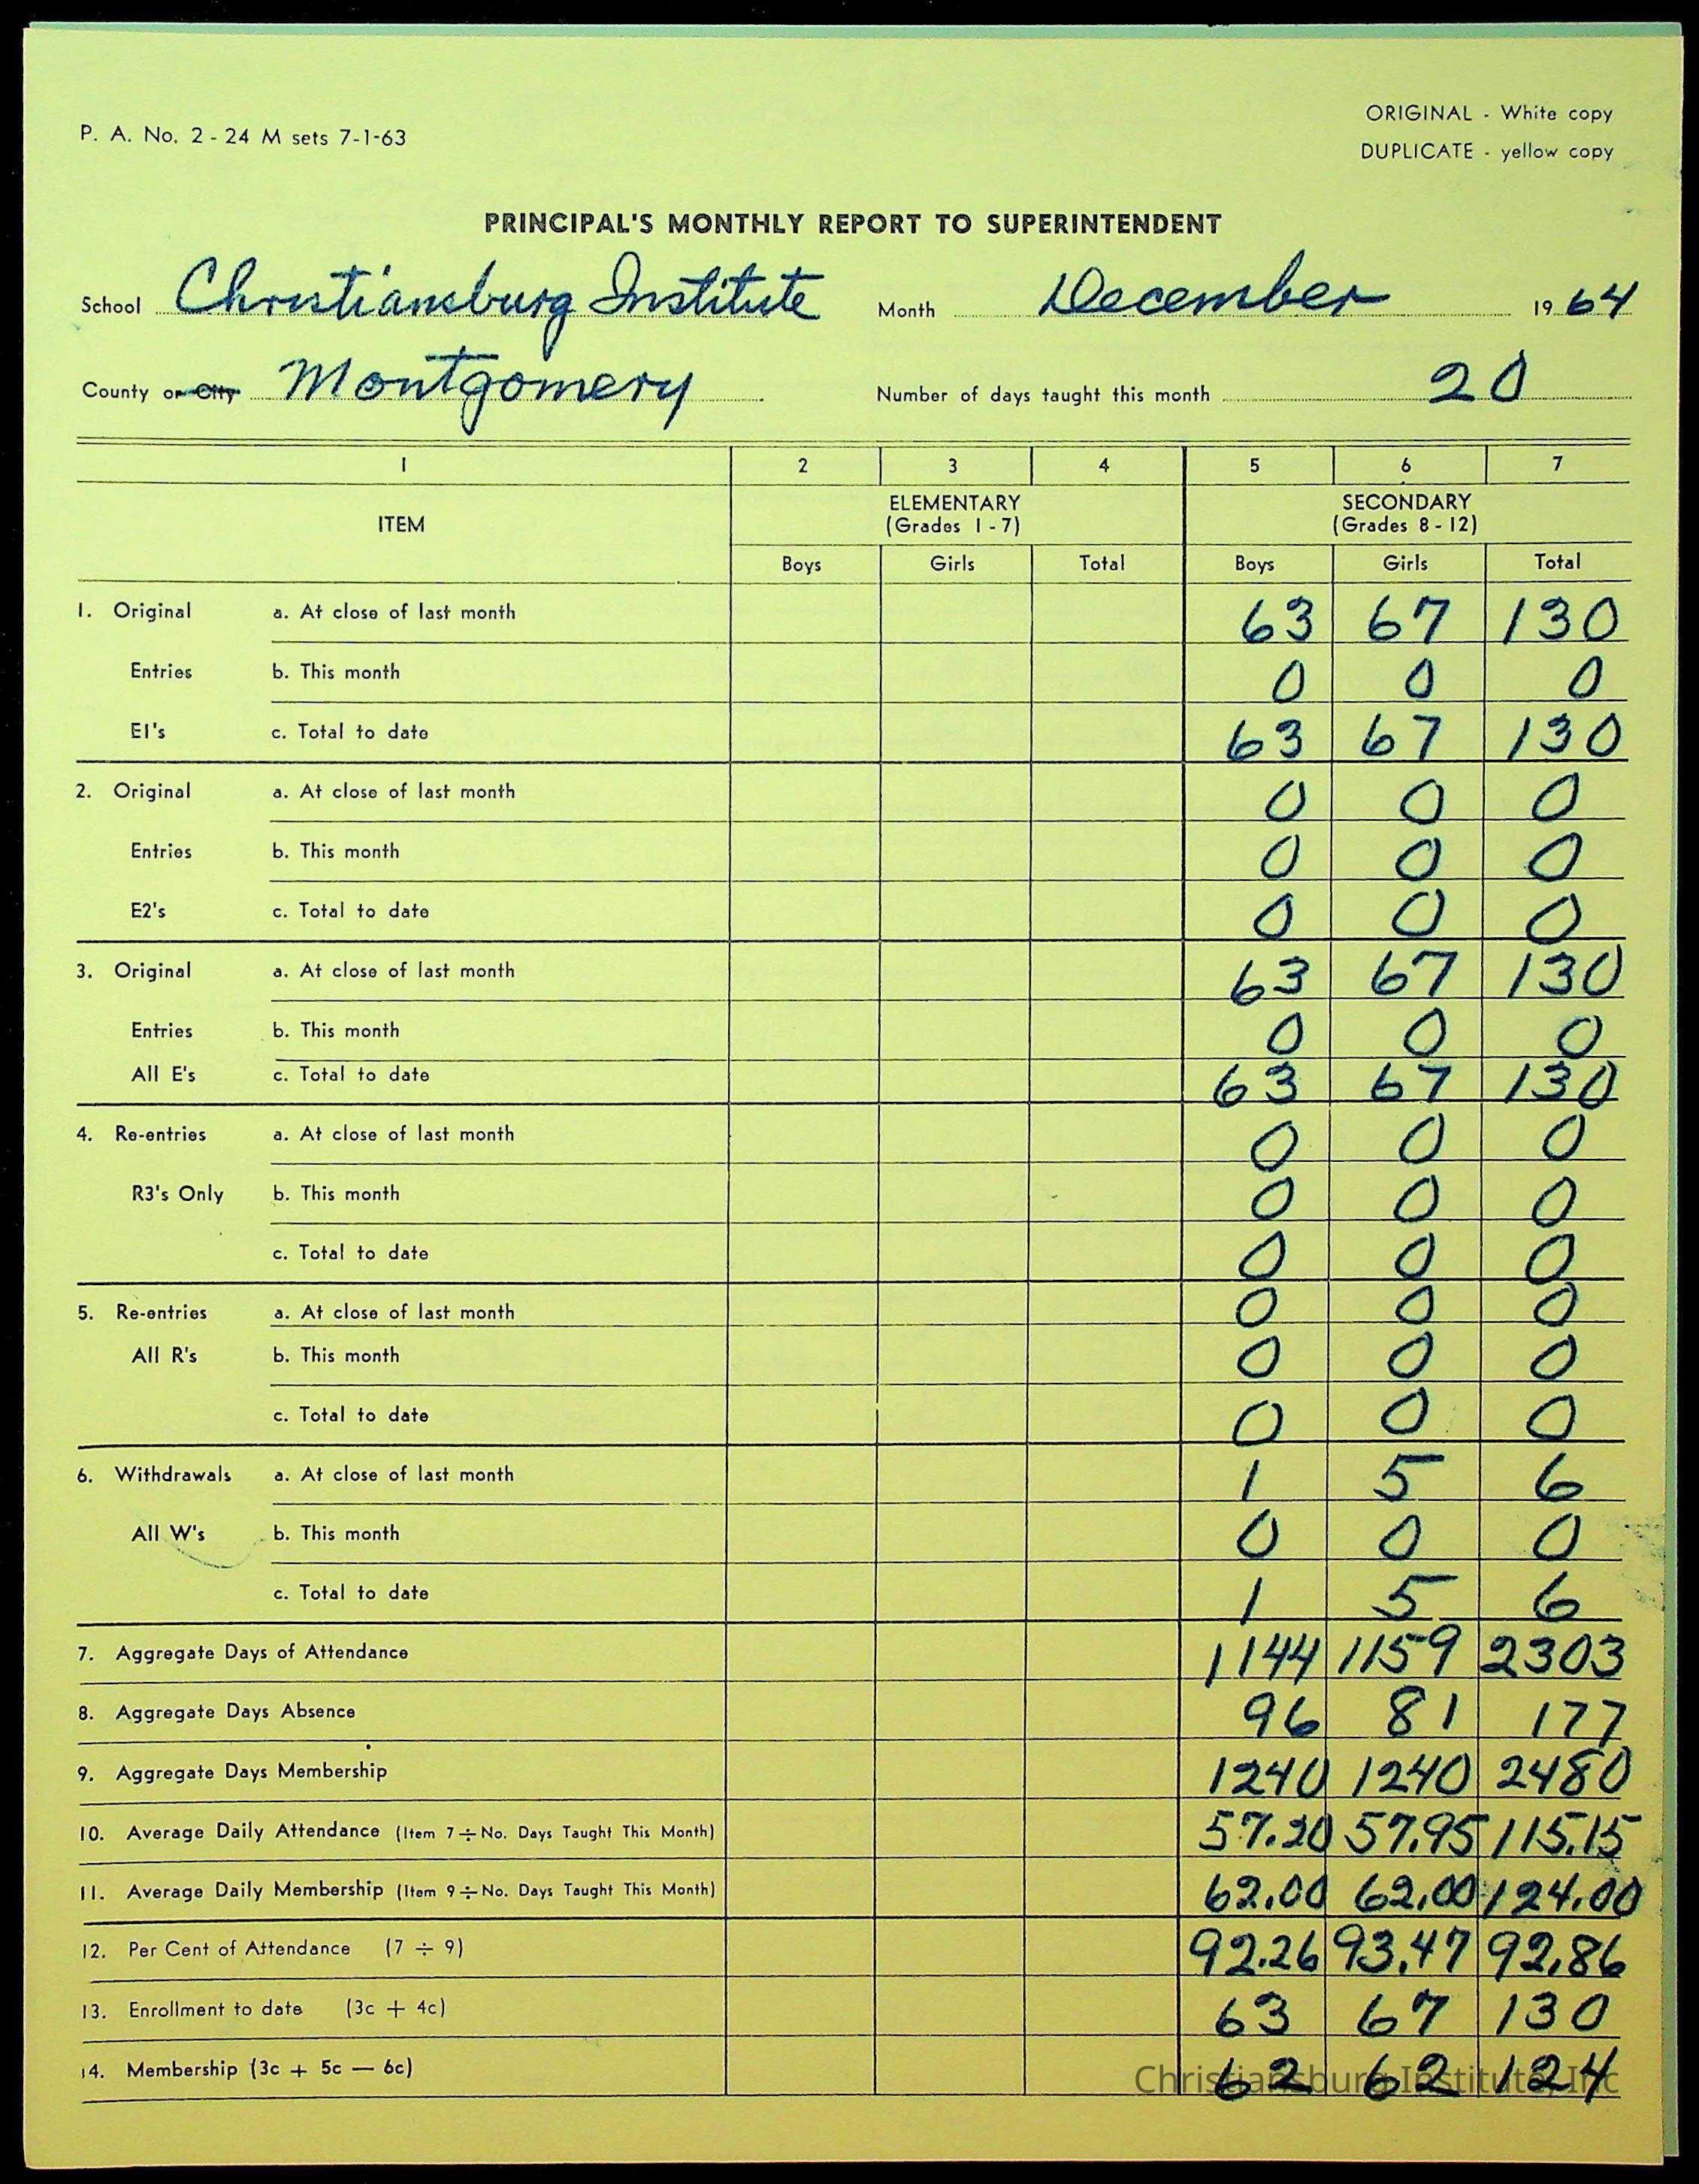 P. A. No. 2 - 24 M sets 7-1-63
ORIGINAL - White copy
DUPLICATE - yellow copy
PRINCIPAL'S MONTHLY REPORT TO SUPERINTENDENT
School Christiansburg Institute Month December 19 64
County or City Montgomery Number of days taught this month 20
1 2 3 4 5 6 7
ITEM
ELEMENTARY
(Grades 1 - 7)
SECONDARY
(Grades 8 - 12)
Boys Girls Total Boys Girls Total
1. Original a. At close of last month 63 67 130
Entries b. This month 0 0 0
E1's c. Total to date 63 67 130
2. Original a. At close of last month 0 0 0
Entries b. This month 0 0 0
E2's c. Total to date 0 0 0
3. Original a. At close of last month 63 67 130
Entries b. This month 0 0 0
All E's c. Total to date 63 67 130
4. Re-entries a. At close of last month 0 0 0
R3's Only b. This month 0 0 0
c. Total to date 0 0 0
5. Re-entries a. At close of last month 0 0 0
All R's b. This month 0 0 0
c. Total to date 0 0 0
6. Withdrawals a. At close of last month 1 5 6
All W's b. This month 0 0 0
c. Total to date 1 5 6
7. Aggregate Days of Attendance 1144 1159 2303
8. Aggregate Days Absence 96 81 177
9. Aggregate Days Membership 1240 1240 2480
10. Average Daily Attendance (Item 7 ÷ No. Days Taught This Month) 57.20 57.95 115.15
11. Average Daily Membership (Item 9 ÷ No. Days Taught This Month) 62.00 62.00 124.00
12. Per Cent of Attendance (7 ÷ 9) 92.26 93.47 92.86
13. Enrollment to date (3c + 4c) 63 67 130
14. Membership (3c + 5c — 6c) 62 62 124
Christiansburg Institute, Inc